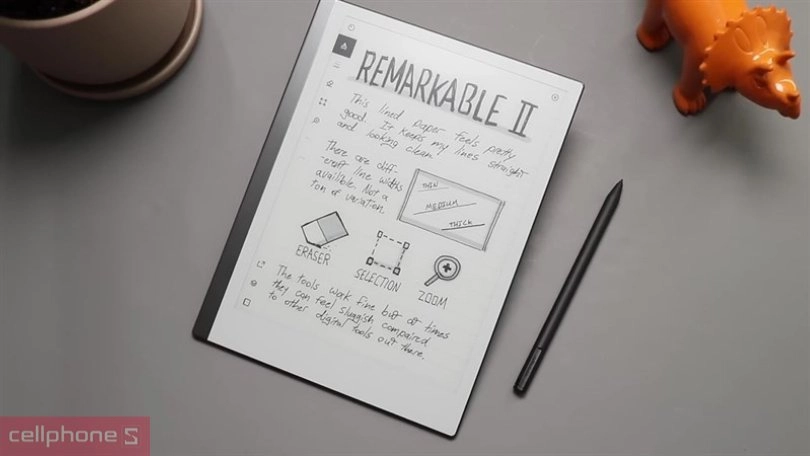 REMARKABLE II
This lined paper feels pretty
good. It keeps my lines straight
and looking clean
There are diff-
erent line widths
availible. Not a
ton of variation.
THIN
MEDIUM
THICK
ERASER
SELECTION
ZOOM
The tools work fine but at times
they can feel sluggish compaired
to other digital tools out there.
cellphone S